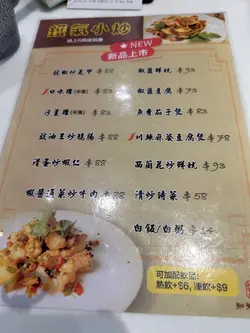 鑊氣小炒
晚上6時後供應
★NEW
新品上市
豉椒炒花甲 $88
口水雞(半隻) $83
沙薑雞(半隻) $88
豉油王炒鵝腸 $88
滑蛋炒蝦仁 $88
蝦醬通菜炒牛肉 $88
椒鹽鮮魷 $93
椒鹽豆腐 $73
魚香茄子煲 $83
川辣麻婆豆腐煲 $78
西蘭花炒鮮魷 $93
清炒時菜 $58
白飯/白粥 $14
可加配飲品:
熱飲+$6, 凍飲+$9